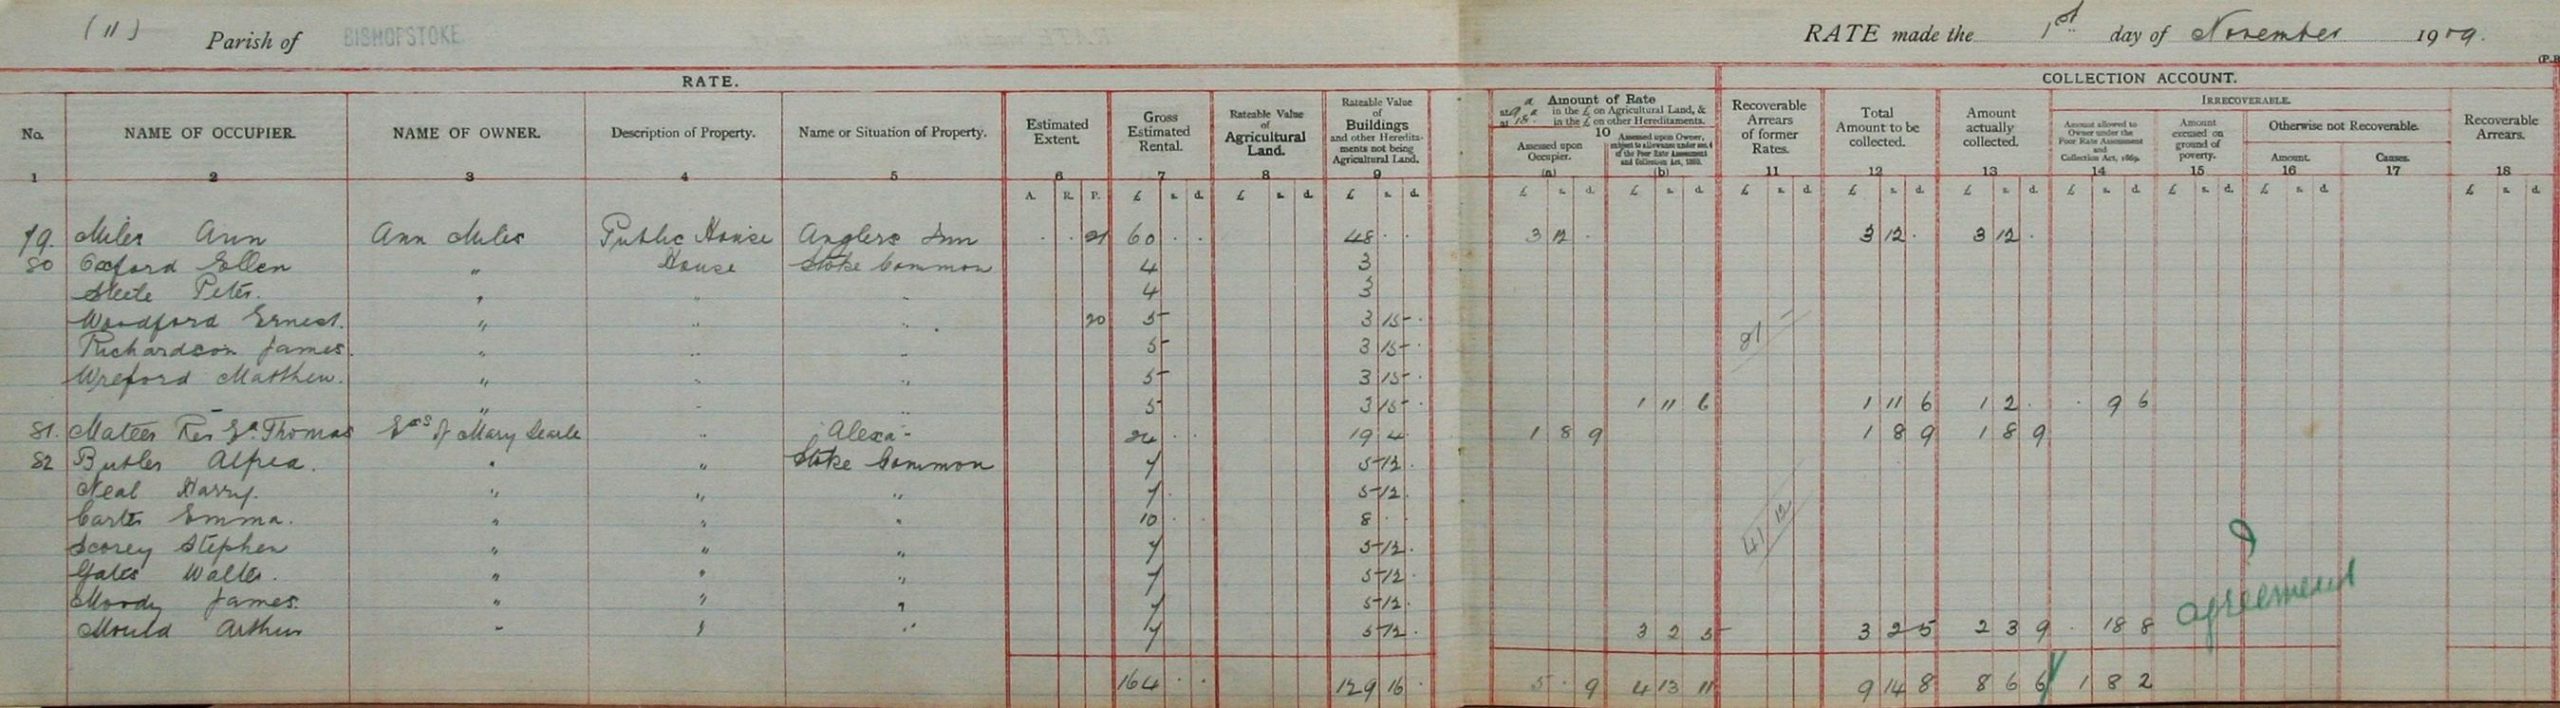 (11) Parish of BISHOPSTOKE. RATE made the 1st day of November 1909.
(P.B
RATE. COLLECTION ACCOUNT.
No. NAME OF OCCUPIER. NAME OF OWNER. Description of Property. Name or Situation of Property. Estimated Extent. Gross Estimated Rental. Rateable Value of Agricultural Land. Rateable Value of Buildings and other Heredita- ments not being Agricultural Land. Amount of Rate in the £ on Agricultural Land, & in the £ on other Hereditaments. Assessed upon Occupier. Assessed upon Owner, subject to allowance under sec. 4 of the Poor Rate Assessment and Collection Act, 1869. Recoverable Arrears of former Rates. Total Amount to be collected. Amount actually collected. IRRECOVERABLE. Amount allowed to Owner under the Poor Rate Assessment and Collection Act, 1869. Amount excused on ground of poverty. Otherwise not Recoverable. Amount. Causes. Recoverable Arrears.
1 2 3 4 5 6 7 8 9 10 (a) (b) 11 12 13 14 15 16 17 18
A. R. P. £ s. d. £ s. d. £ s. d. £ s. d. £ s. d. £ s. d. £ s. d. £ s. d. £ s. d. £ s. d. £ s. d. £ s. d.
79. Miles Ann Ann Miles Public House Anglers Inn . . 21 60 . . 48 . . 3 12 . 3 12 . 3 12 .
80 Oxford Ellen " House Stoke Common 4 3
Steele Peter. " " " 4 3
Woodford Ernest. " " " 20 5 3 15 .
Richardson James. " " " 5 3 15 .
81
Wreford Matthew. " " " 5 3 15 .
– " " " 5 3 15 . 1 11 6 1 11 6 1 2 . . 9 6
81. Thomas Exs of Mary Searle " "Alexa" 24 . . 19 4 . 1 8 9 1 8 9 1 8 9
82 Butler Alfred. " " Stoke Common 7 5 12 .
Neal Harry. " " " 7 5 12 .
Carter Emma. " " " 10 . . 8 . .
41 12
Scorey Stephen " " " 7 5 12 .
Gates Walter. " " " 7 5 12 .
Moody James. " " " 7 5 12 .
Mould Arthur " " " 7 5 12 . 3 2 5 3 2 5 2 3 9 . 18 8
agreement
164 . . 129 16 . 5 . 9 4 13 11 9 14 8 8 6 6 1 8 2